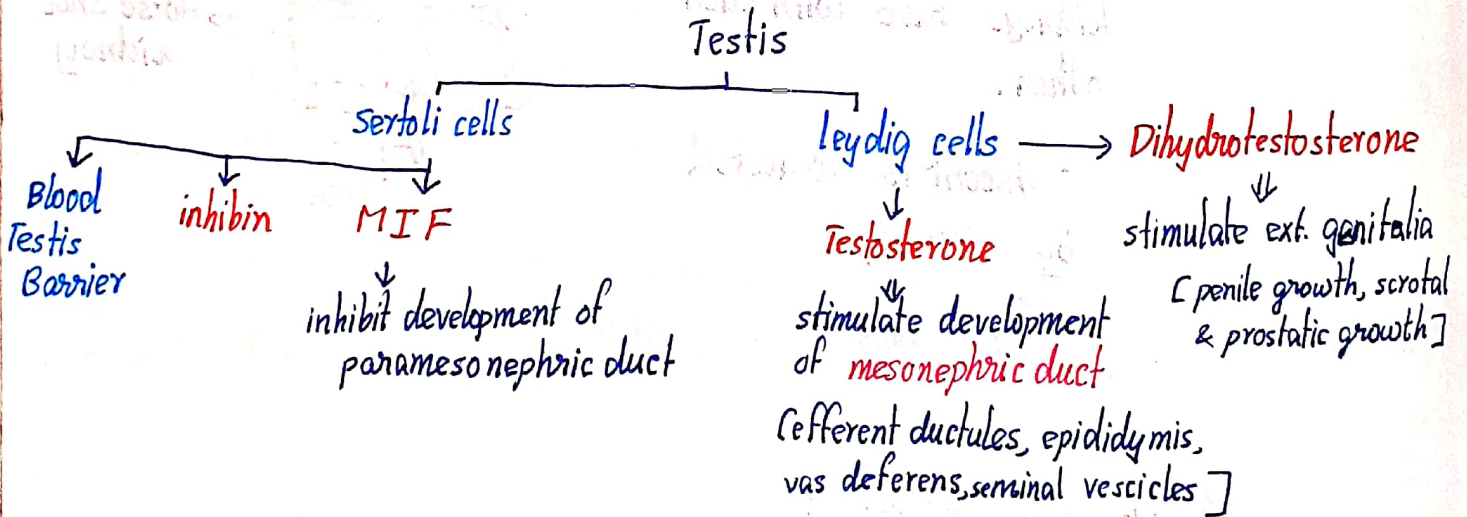 Testis
Sertoli cells
Leydig cells
Dihydrotestosterone
Blood
Testis
Barrier
inhibin
MIF
inhibit development of
paramesonephric duct
Testosterone
stimulate development
of mesonephric duct
(efferent ductules, epididymis,
vas deferens, seminal vescicles]
stimulate ext. genitalia
[penile growth, scrotal
& prostatic growth]
kidney